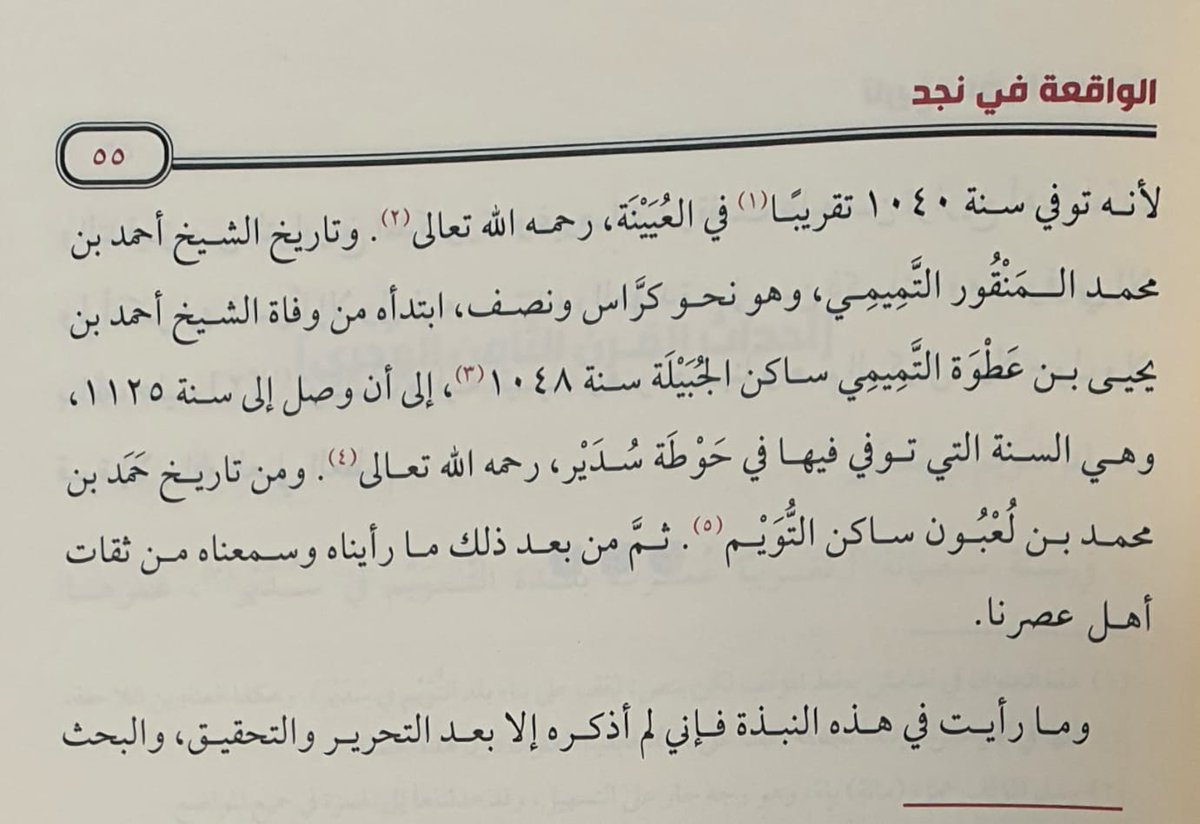 الواقعة في نجد
٥٥
لأنه توفي سنة ١٠٤٠ تقريبًا(١) في العُيَيْنَة، رحمه الله تعالى(٢). وتاريخ الشيخ أحمد بن
محمد المَنْقُور التَّمِيمِي، وهو نحو كرَّاس ونصف، ابتدأه من وفاة الشيخ أحمد بن
يحيى بن عَطْوَة التَّمِيمِي ساكن الجُبَيْلَة سنة ١٠٤٨(٣)، إلى أن وصل إلى سنة ١١٢٥،
وهي السنة التي توفي فيها في حَوْطَة سُدَيْر، رحمه الله تعالى(٤). ومن تاريخ حَمَد بن
محمد بن لُعْبُون ساكن التُّوَيْم(٥). ثمَّ من بعد ذلك ما رأيناه وسمعناه من ثقات
أهل عصرنا.
وما رأيت في هذه النبذة فإني لم أذكره إلا بعد التحرير والتحقيق، والبحث